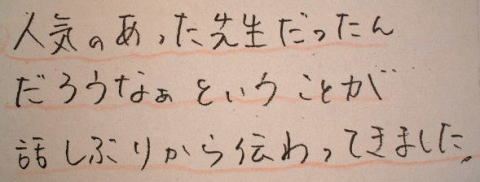 人気のあった先生だったん
だろうなぁということが
話しぶりから伝わってきました。